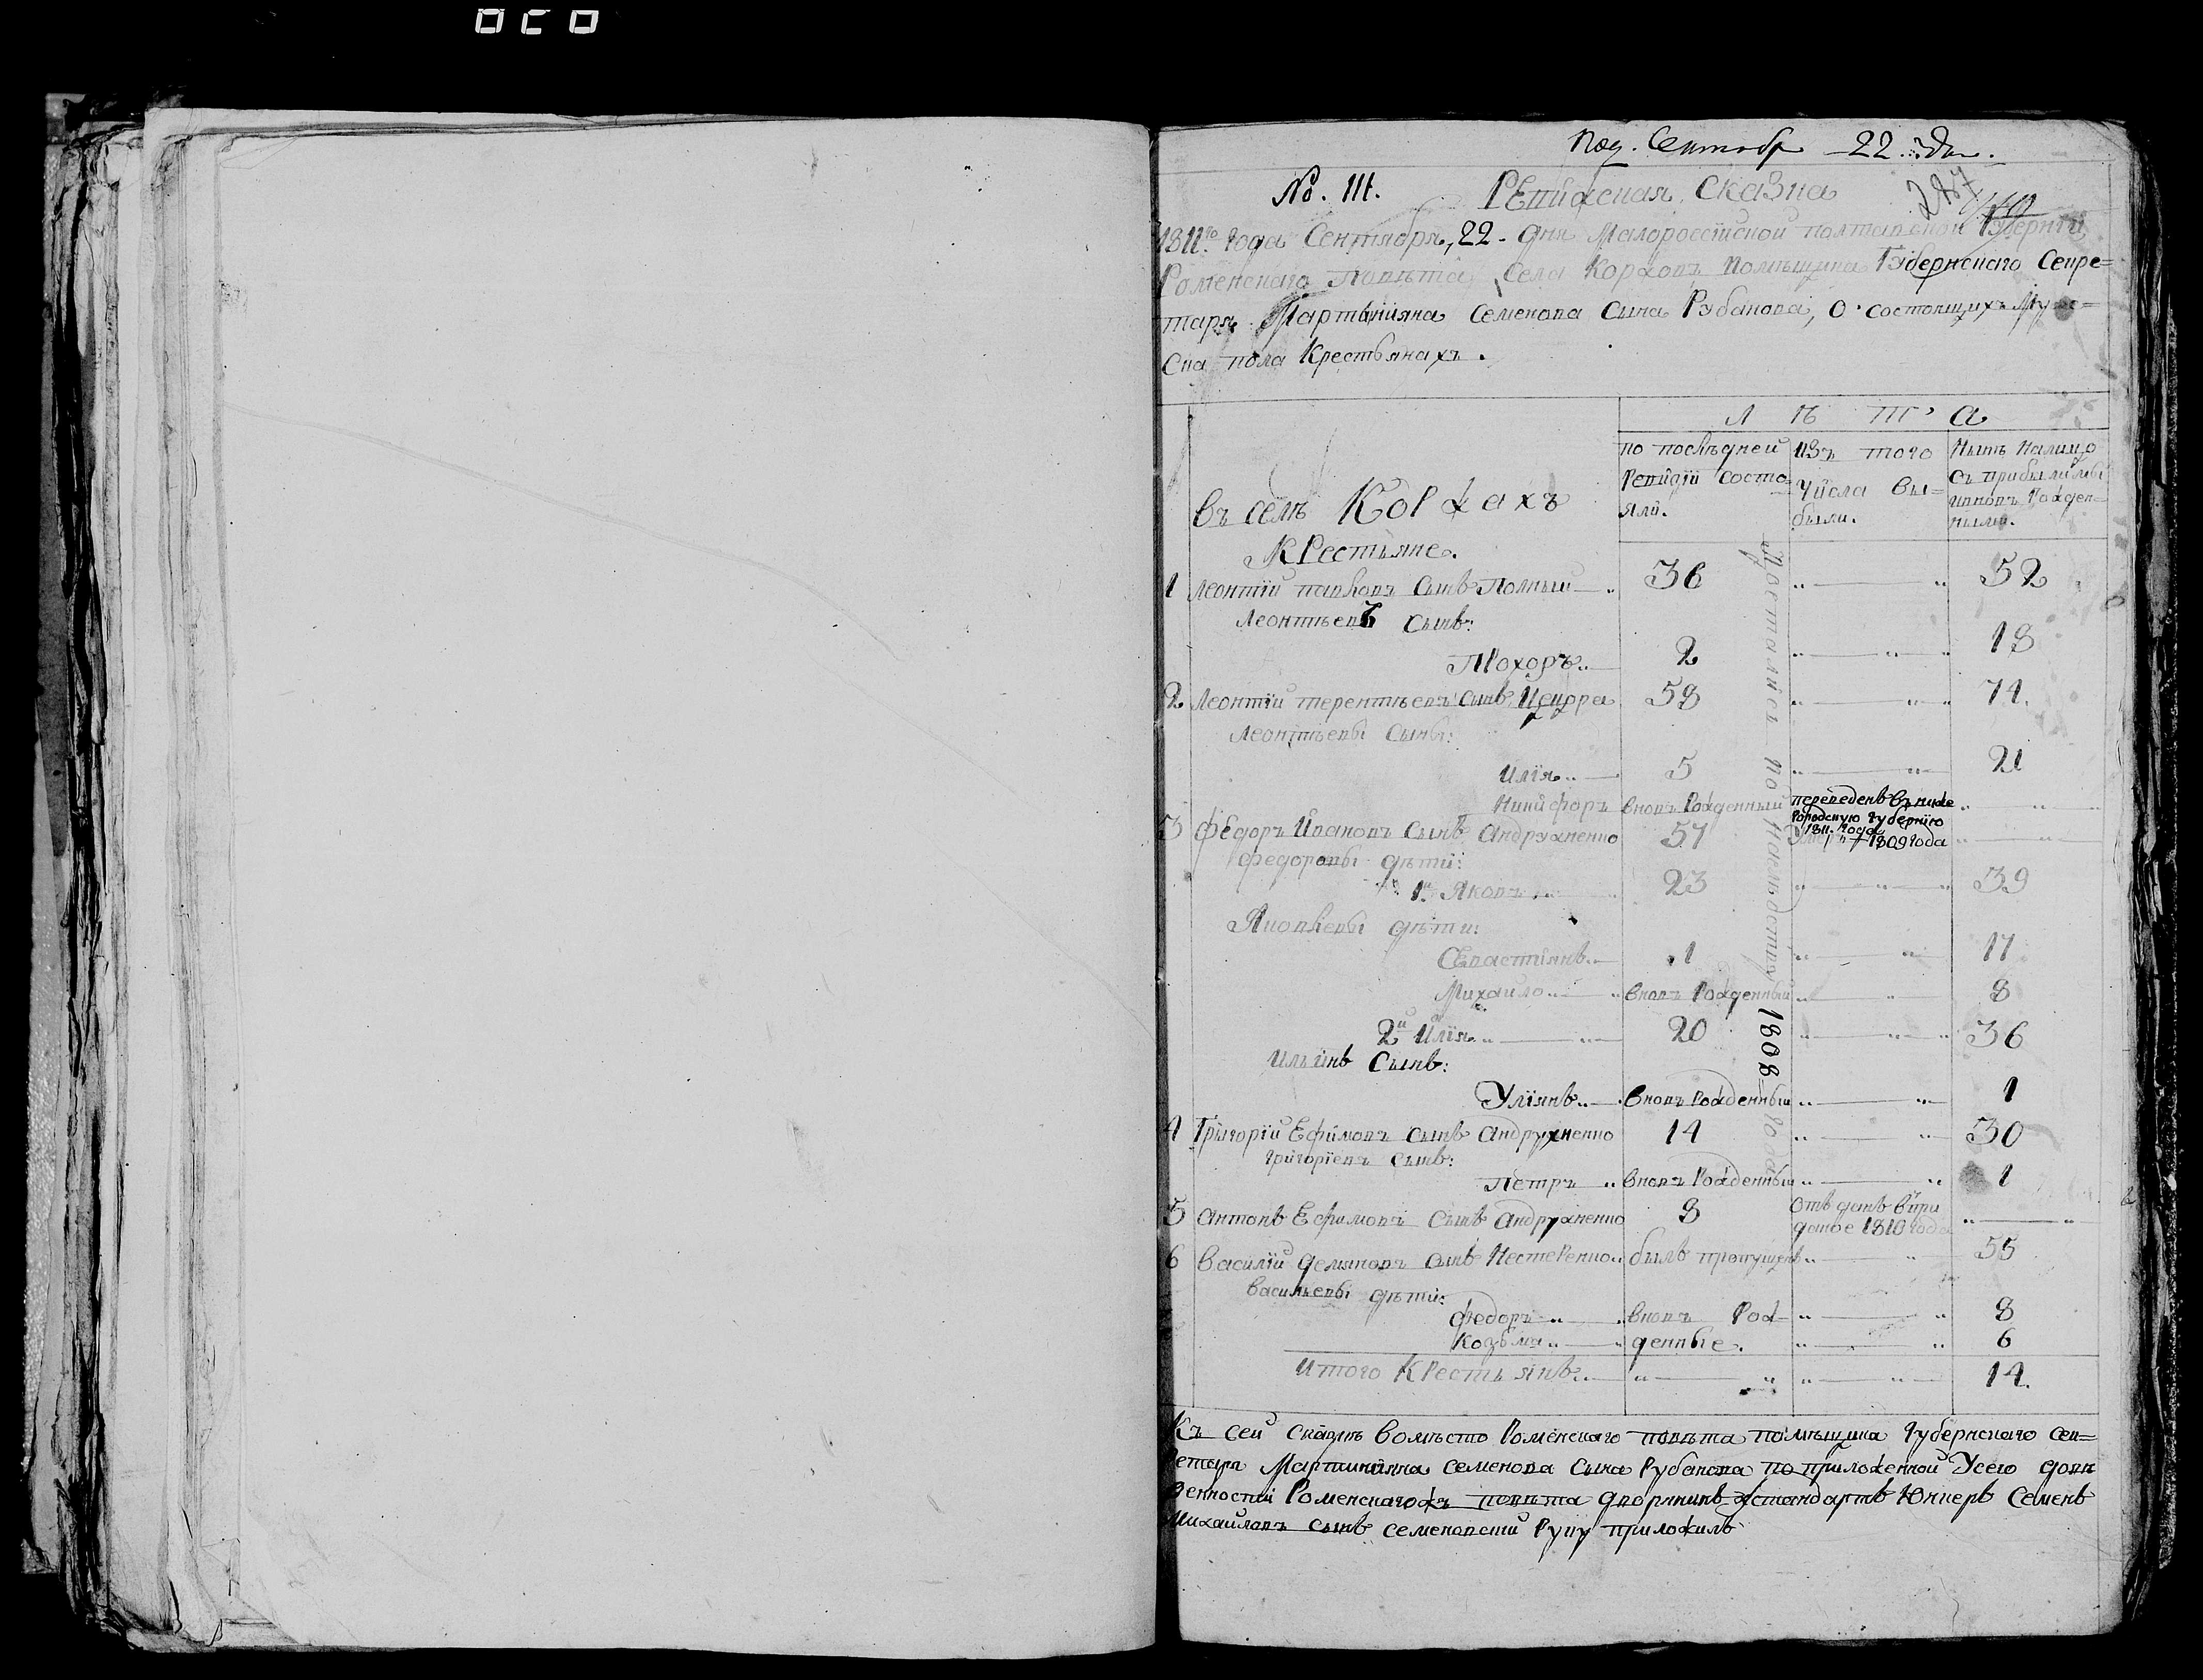 Под. Сентября 22. дня.
No. 111. РЕвизская Сказка
287
1811го года Сентября, 22 - дня Малоросеіиской полтавской Губерніи
Роменского Повѣта, Села Коржовъ Помѣщика Губернского Секре=
таря Мартыніяна Семенова Сына Рубанова, о состоящихъ Муже=
ска пола Крестьянахъ.
Л ѣ т а
по послѣдней Ревизіи состо=яли.
изъ того Числа вы=были.
Нынѣ Налицо съ прибылими ивновъ Рожден=ными.
въ селѣ Коржахъ
КРестьяне.
1 Леонтій павловъ Сынъ Полныи 36 52
Леонтьевъ Сынъ:
ПРохоръ 2 18
2 Леонтіи терентьевъ Сынъ 58 74.
Леонтьевы Сыны:
Илія 5 21
Никифоръ вновъ Рожденныи переведенъ въ ниже городскую губернію 1811. года
3 Федоръ Ивановъ Сынъ Андрухненко 57 Умеръ 1809 года
Федоровы дѣти:
1й Яковъ 23 39
Яковлевы дѣти:
СЕвастіянъ 1 17
Михаило вновъ Рожденныи 8
2й Илія 20 36
Ильинъ Сынъ:
Уліянъ вновъ Рожденныи 1
4 Григоріи Ефимовъ Сынъ Андрухненко 14 30
Григоріевъ Сынъ:
Петръ вновъ Рожденныи 1
5 Антонъ Ефимовъ Сынъ Андрухненко 8 Отъданъ въприданое 1810 года
6 Василіи Демяновъ Сынъ НестеРенко былъ пропущенъ 55
Васильевы дѣти:
Федоръ вновъ Рож= 8
Козьма денные. 6
Итого КРестьянъ 14.
Досталисъ по наслѣдствію 1808 года
Къ сей сказкѣ вомѣсто Роменскаго повѣта помѣщика Губернскаго сек=
ретаря Мартиніяна семенова сына Рубанова по приложенной Усего довѣ
ренности Роменскагожъ повѣта дворянинъ Юнкеръ Семенъ
Михаиловъ сынъ семеновскій Руку приложилъ